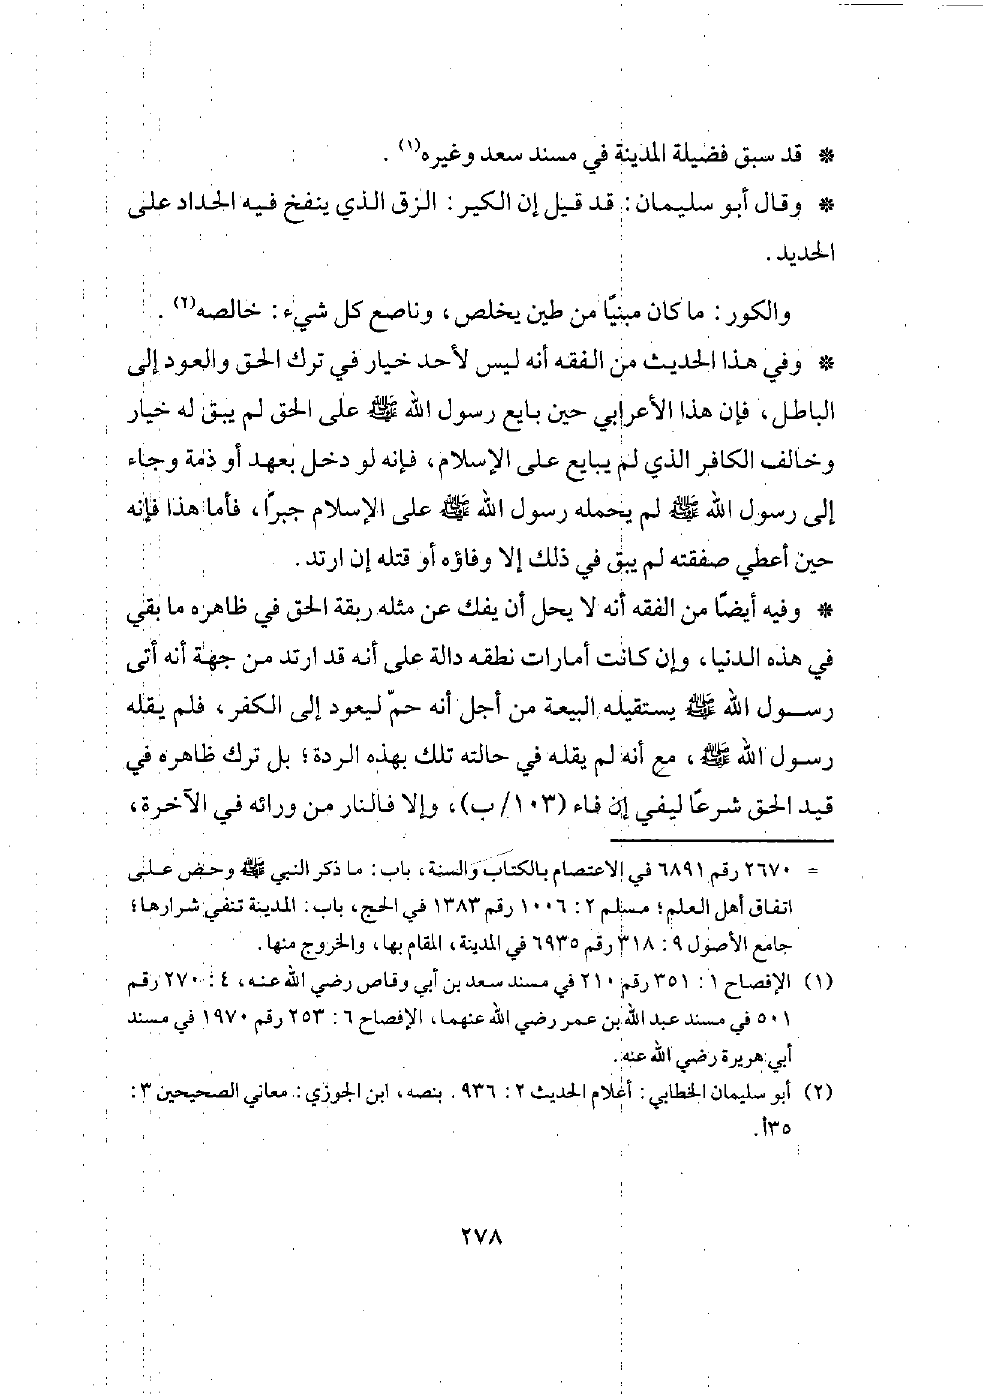 * قد سبق فضيلة المدينة في مسند سعد وغيره(١) .
* وقال أبو سليمان : قد قيل إن الكير : الزق الذي ينفخ فيه الحداد على
الحديد .
والكور : ما كان مبنيًا من طين يخلص ، وناصع كل شيء : خالصه(٢) .
* وفي هذا الحديث من الفقه أنه ليس لأحد خيار في ترك الحق والعود إلى
الباطل ، فإن هذا الأعرابي حين بايع رسول الله ﷺ على الحق لم يبق له خيار
وخالف الكافر الذي لم يبايع على الإسلام ، فإنه لو دخل بعهد أو ذمة وجاء
إلى رسول الله ﷺ لم يحمله رسول الله ﷺ على الإسلام جبرًا ، فأما هذا فإنه
حين أعطي صفقته لم يبق في ذلك إلا وفاؤه أو قتله إن ارتد .
* وفيه أيضًا من الفقه أنه لا يحل أن يفك عن مثله ربقة الحق في ظاهره ما بقي
في هذه الدنيا ، وإن كانت أمارات نطقه دالة على أنه قد ارتد من جهة أنه أتى
رسول الله ﷺ يستقيله البيعة من أجل أنه حمّ ليعود إلى الكفر ، فلم يقله
رسول الله ﷺ ، مع أنه لم يقله في حالته تلك بهذه الردة ؛ بل ترك ظاهره في
قيد الحق شرعًا ليفي إن فاء (١٠٣/ ب) ، وإلا فالنار من ورائه في الآخرة ،
= ٢٦٧٠ رقم ٦٨٩١ في الاعتصام بالكتاب والسنة ، باب : ما ذكر النبي ﷺ وحض على
اتفاق أهل العلم ؛ مسلم ٢ : ١٠٠٦ رقم ١٣٨٣ في الحج ، باب : المدينة تنفي شرارها ؛
جامع الأصول ٩ : ٣١٨ رقم ٦٩٣٥ في المدينة ، المقام بها ، والخروج منها .
(١) الإفصاح ١ : ٣٥١ رقم ٢١٠ في مسند سعد بن أبي وقاص رضي الله عنه ، ٤ : ٢٧٠ رقم
٥٠١ في مسند عبد الله بن عمر رضي الله عنهما ، الإفصاح ٦ : ٢٥٣ رقم ١٩٧٠ في مسند
أبي هريرة رضي الله عنه .
(٢) أبو سليمان الخطابي : أعلام الحديث ٢ : ٩٣٦ . بنصه ، ابن الجوزي : معاني الصحيحين ٣ :
٣٥أ .
٢٧٨